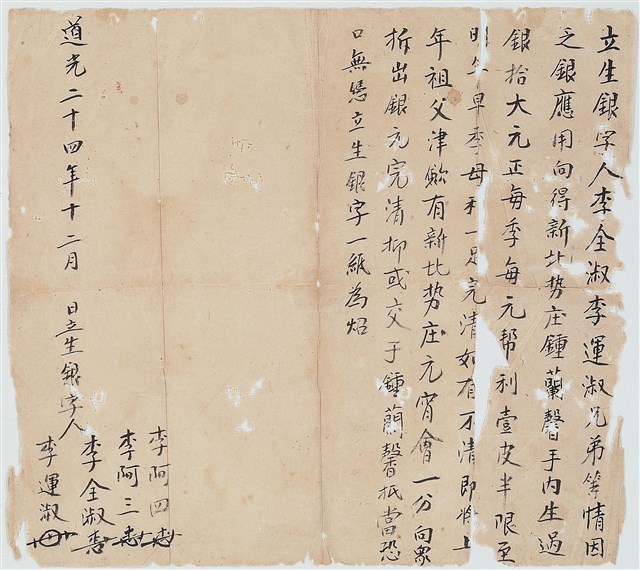 立生銀字人李全淑李運淑兄弟等情因
乏銀應用向得新北势庄鍾蘭馨手內生過
銀拾大元正每季每元帮利壹皮半限至
明年早季母利一足完清如有不清即將上
年祖父津飲有新北势庄元宵會一分向眾
拆出銀元完清抑或交于鍾蘭馨抵當恐
口無憑立生銀字一紙為炤
道光二十四年十二月 日立生銀字人
李阿四
李阿三
李全淑
李運淑